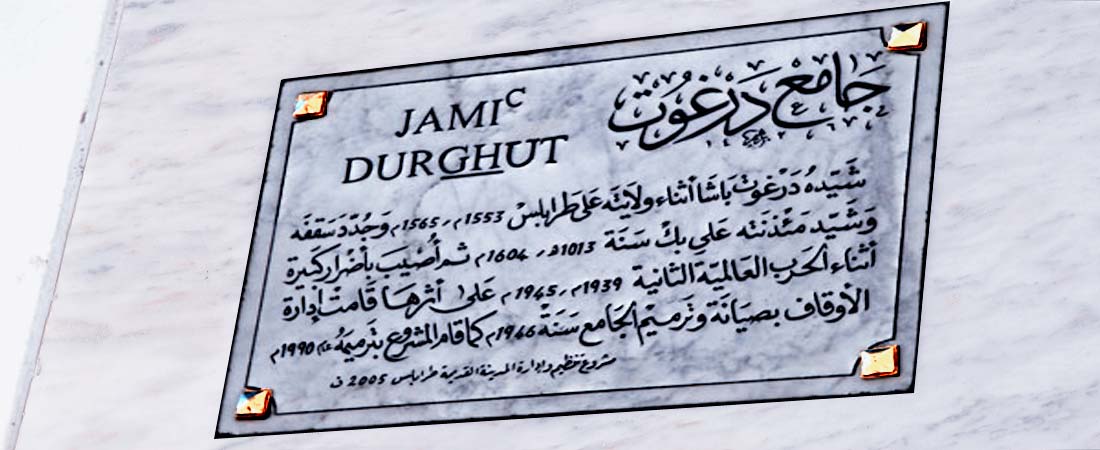 جامع درغوت
JAMIᶜ
DURGHUT
شَيّدهُ دَرْغوت بَاشَا أثناء ولايَته عَلى طرابلسْ 1553م / 1565م وَجُدّدَ سَقفَه
وَشَيّد مَئْذنَته عَلي بكْ سَنَة 1013هـ / 1604م ثم أُصْيبَ بأضْرار كَبيرة
أثناء الحَرب العَالميّة الثانية 1939م / 1945م عَلىٰ أثرهَا قَامتْ إدارة
الأوقاف بصيَانَة وتَرميْم الجَامع سَنَة 1946م كما قام المشروع بتَرميمهُ عام 1990م
مشروع تنظيم وإدارة المدينة القديمة طرابلس 2005 ف